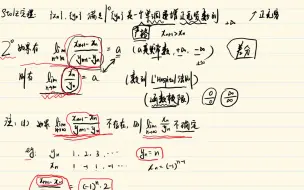 Stolz定理: {xn}, {yn} 满足 1° {yn} 是一个单调递增正无穷数列
严格 xn+1>xn
+∞
2° 如果有 lim n→∞ (xn+1-xn)/(yn+1-yn) = a (a是实数, +∞, -∞) 差分
则有 lim n→∞ xn/yn = a (数列 L'Hospital 法则)
(函数极限) 0/0 ∞/∞
注: (1) 如果 lim n→∞ (xn+1-xn)/(yn+1-yn) 不存在, 则 lim n→∞ xn/yn 不确定
eg: yn 1. 2. 3. ... yn=n
xn 1 -1 1 -1 ... xn=(-1)^(n-1)
(xn+1-xn) = (-1)^n·2